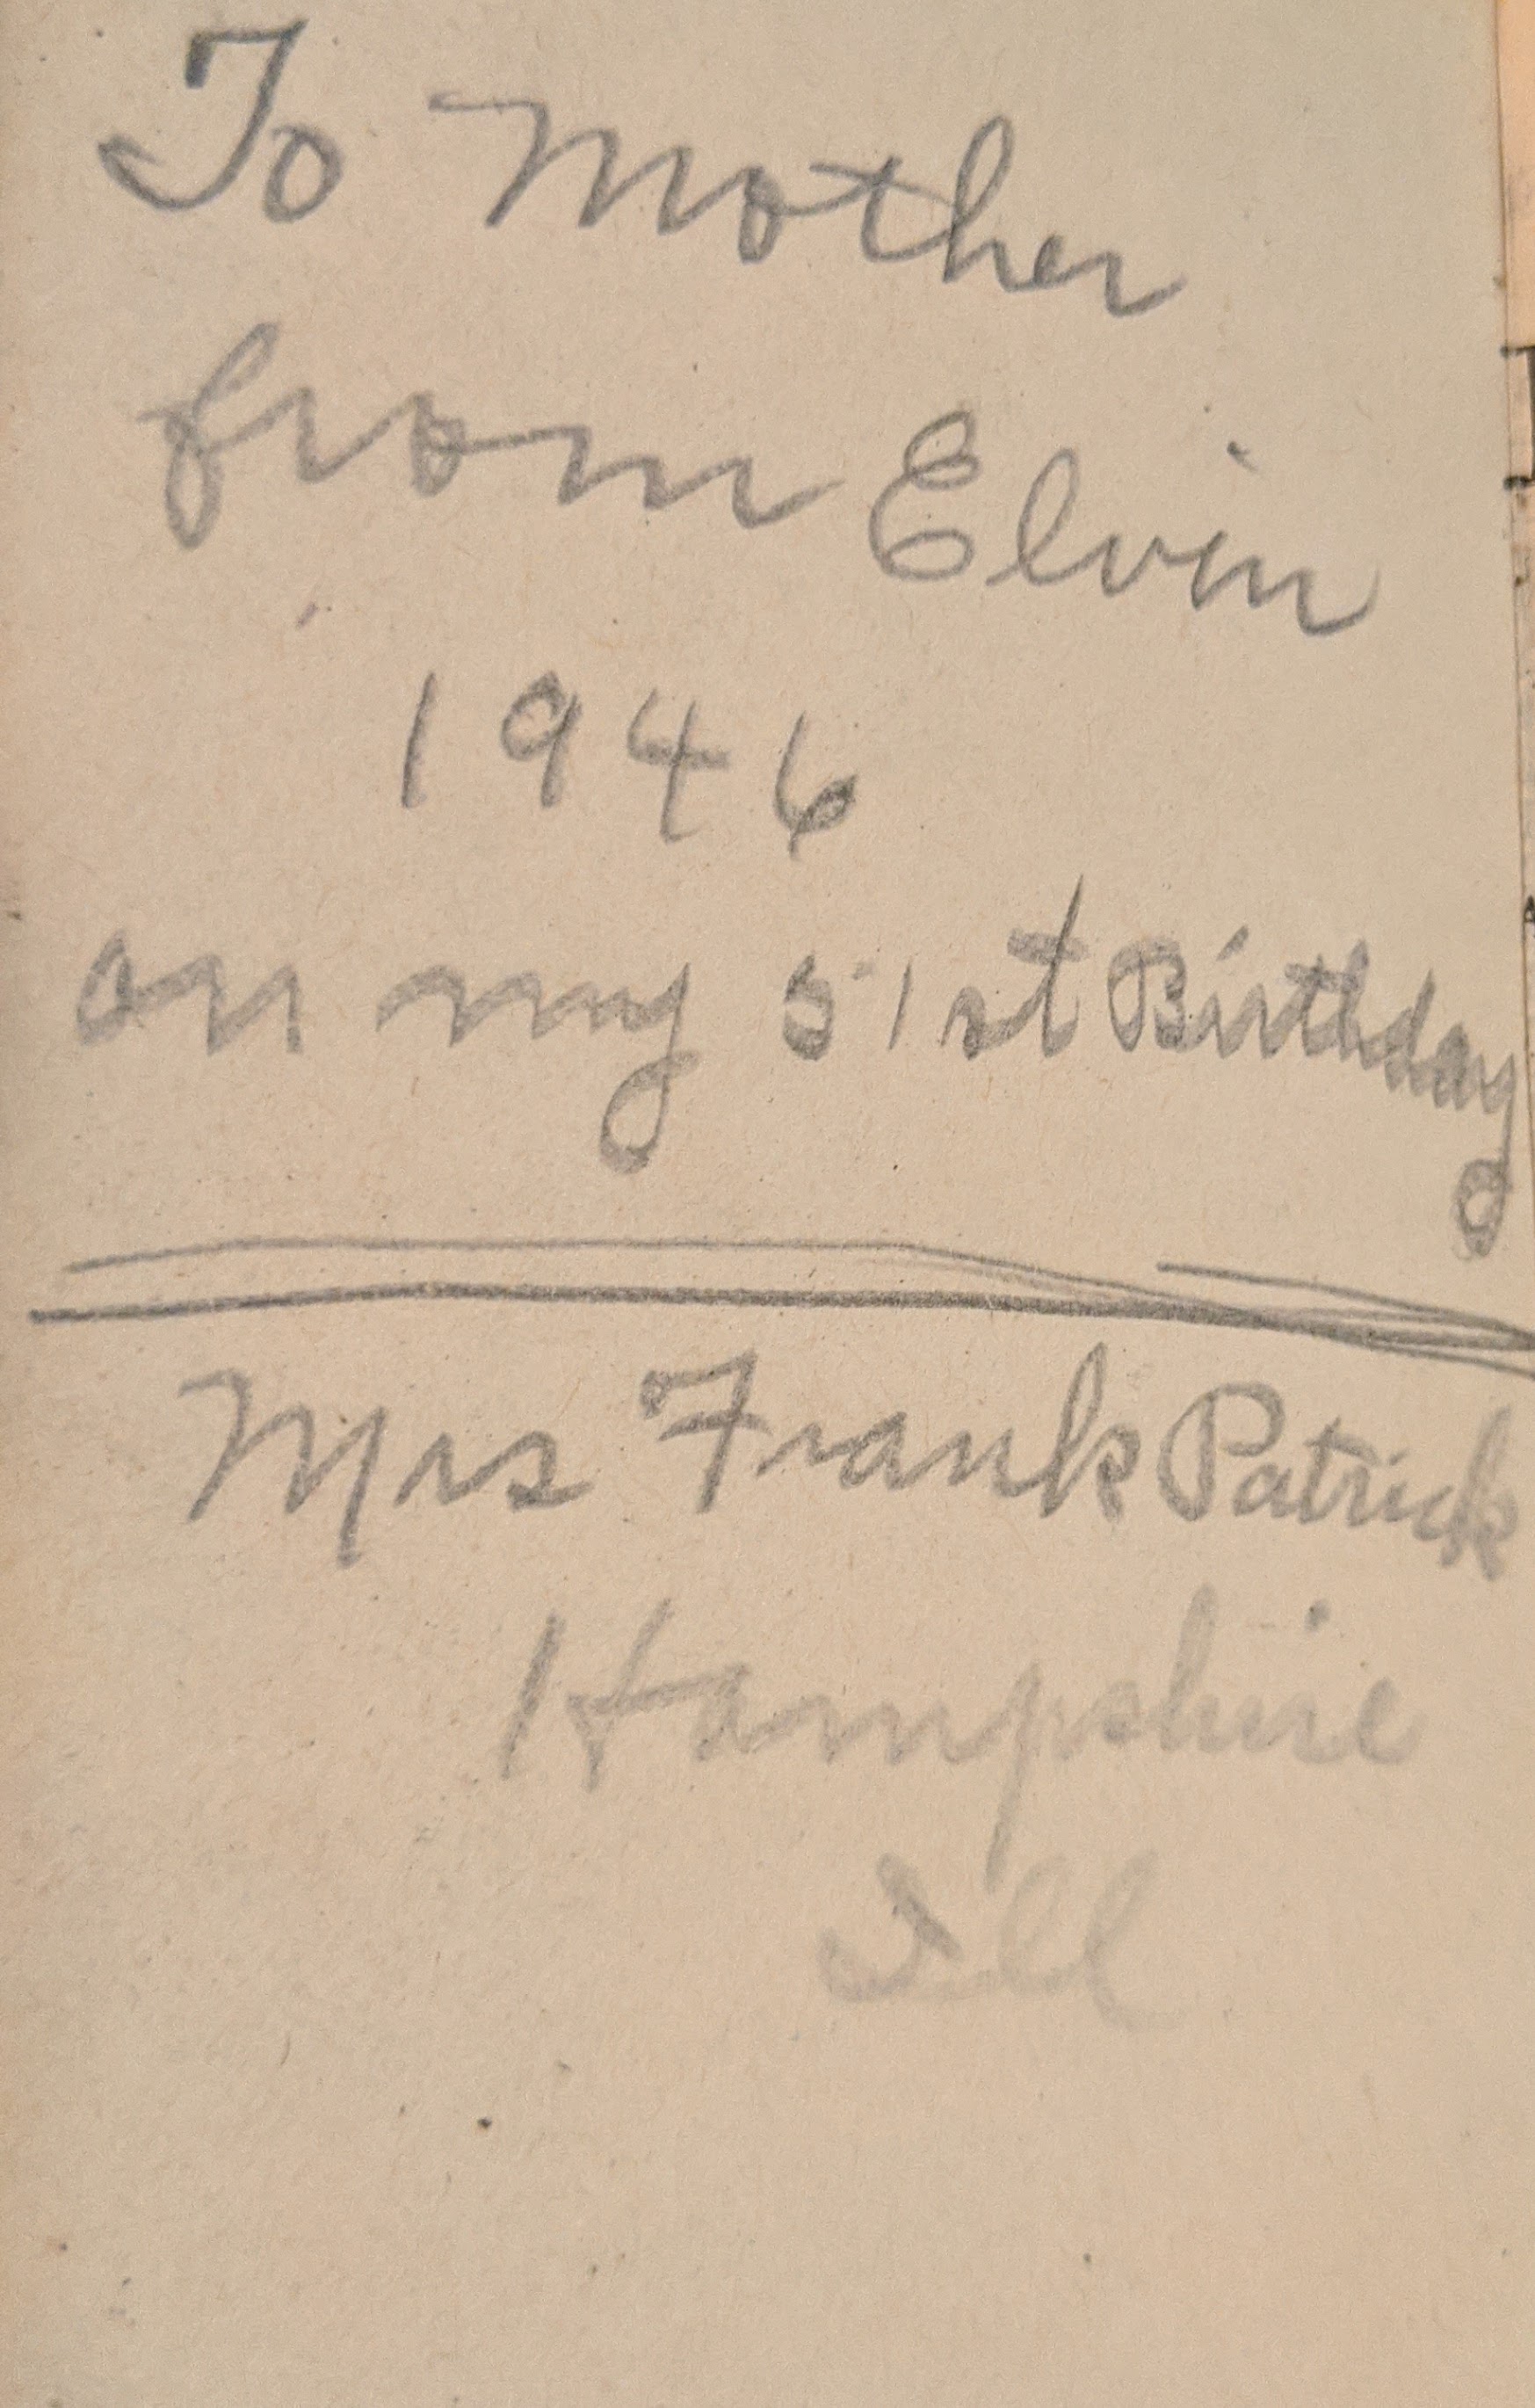 To Mother
from Elvin
1946
on my 51st Birthday
Mrs Frank Patrick
Hampshire
Ill